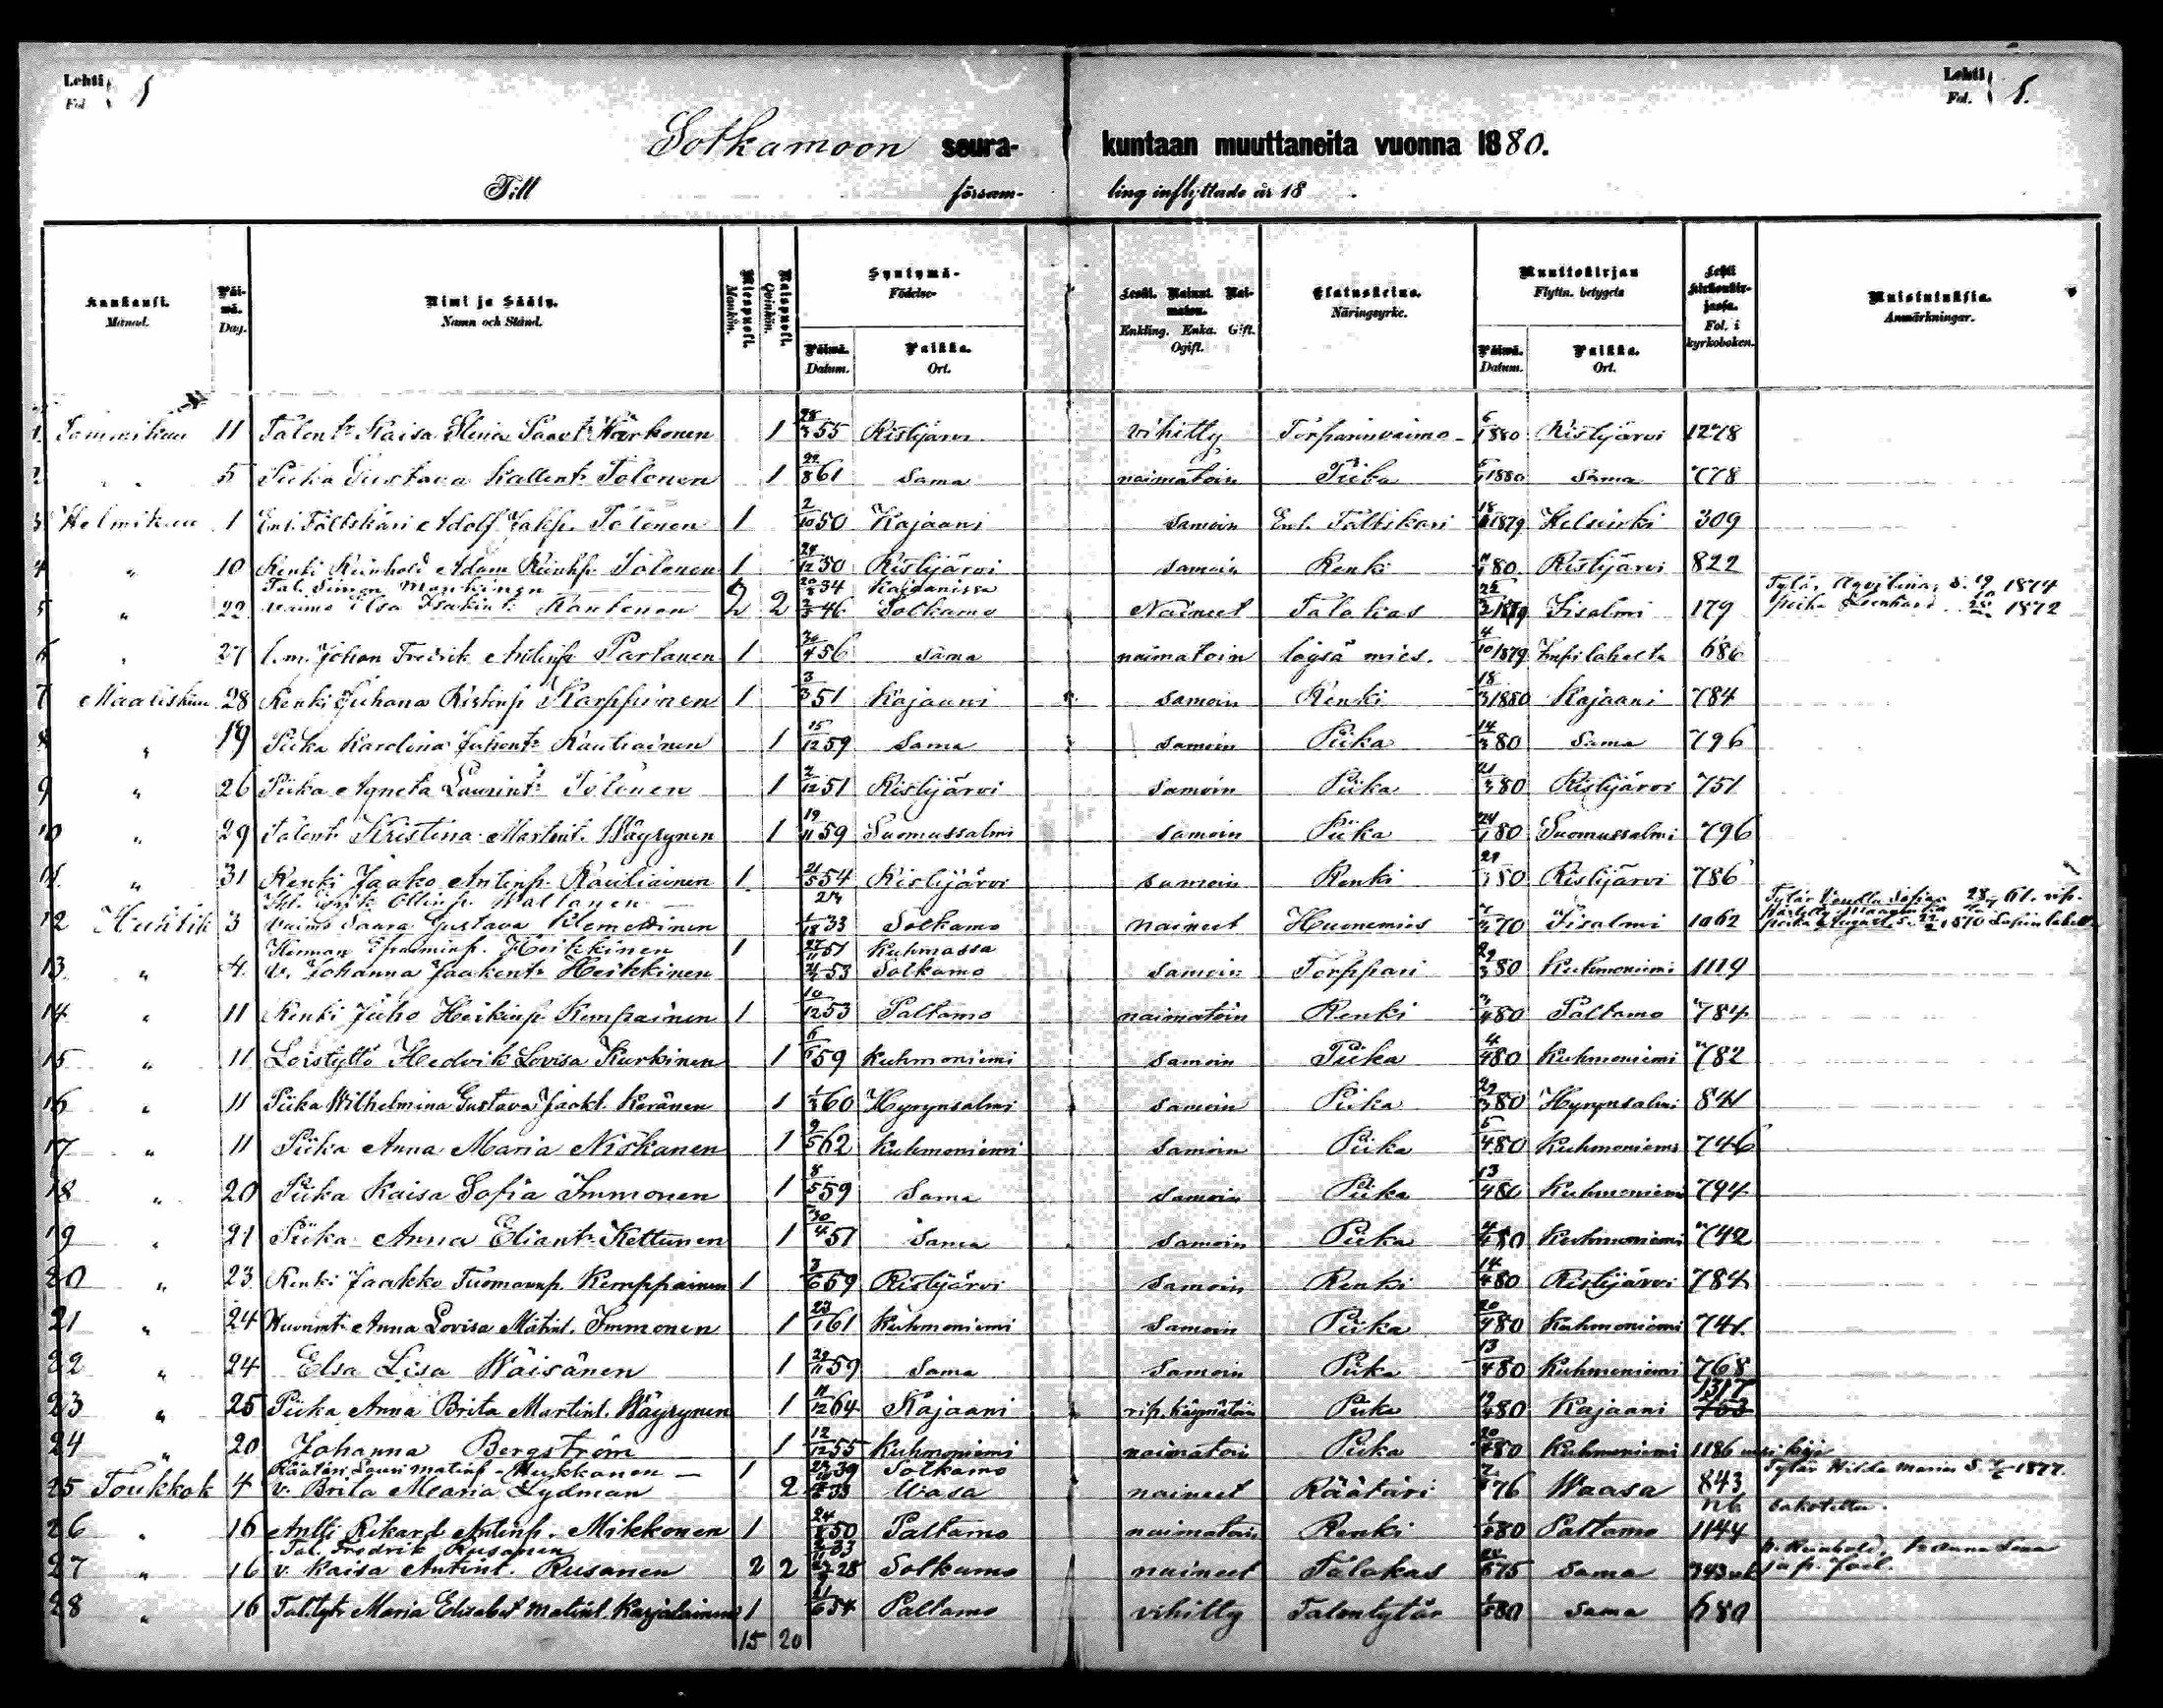 Lehti 1
Fol.
Lehti 1.
Fol.
Sotkamoon seura- kuntaan muuttaneita vuonna 1880.
Till försam- ling inflyttade år 18 .
Kuukausi. Månad. Päivä. Dag. Nimi ja Sääty. Namn och Stånd. Miespuoli. Mankön. Naispuoli. Qvinkön. Syntymä- Födelse- Päivä. Datum. Paikka. Ort. Leski. Nainut. Naimaton. Enkling. Enka. Gift. Ogift. Elatuskeino. Näringsyrke. Muuttokirjan Flyttn. betygets Päivä. Datum. Paikka. Ort. Lehti kirkonkirjassa. Fol. i kyrkoboken. Muistutuksia. Anmärkningar.
1 Tammikuu 11 Talont. Kaisa Elena Kärkönen 1 28/3 55 Ristijärvi vihitty Torparinvaimo 6/1 1880 Ristijärvi 1278
2 " 5 Piika Gustava Kallent. Tolonen 1 22/8 61 Sama naimatoin Piika 1880 Sama 778
3 Helmikuu 1 Ent. Fältskäri Adolf Jakp. Tolonen 1 2/10 50 Kajaani Samoin Ent. Fältskäri 18 1879 Helsinki 309
4 " 10 Renki Reinhold Adam Reinhp. Tolonen 1 28/12 50 Ristijärvi Samoin Renki 80 Ristijärvi 822
Tal. Simon Mankinen 34 Kajaanissa Tytär, Agvilina, S. 1874
5 " 22 vaimo Elsa Isakint. Rautonen 2 2 46 Sotkamo Naineet Talokas 1879 Iisalmi 179 poika Leonhard 1872
6 " 27 l.m. Johan Fredrik Antinp. Partanen 1 30/4 56 Sama naimatoin löysä mies. 4/10 1879 Impilahelta 686
7 Maaliskuu 28 Renki Juhana Ristinp. Karppinen 1 3/3 51 Kajaani Samoin Renki 18/3 1880 Kajaani 784
8 " 19 Piika Karolina Juhont. Rautiainen 1 15/12 59 Sama Samoin Piika 14/3 80 Sama 796
9 " 26 Piika Agneta Laurint. Tolonen 1 2/12 51 Ristijärvi Samoin Piika 21/3 80 Ristijärvi 751
10 " 29 Talont. Kristina Martint. Wäyrynen 1 19/11 59 Suomussalmi Samoin Piika 24/1 80 Suomussalmi 796
11. " 31 Renki Jaako Antinp. Rautiainen 1. 21/5 54 Ristijärvi Samoin Renki 80 Ristijärvi 786
Ollinp. Mattanen
12 Huhtik 3 vaimo Saara Gustava Klemettinen 33 Sotkamo naineet Huonemies 70 Iisalmi 1062 poika August 1870
Herman Efraiminp. Heikkinen 1 51 Kuhmossa
13. " 4. v. Johanna Jaakont. Heikkinen 53 Sotkamo Samoin Torppari 29/3 80 Kuhmoniemi 1119
14 " 11 Renki Juho Heikinp. Kemppainen 1 10/12 53 Paltamo naimatoin Renki 80 Paltamo 784
15 " 11 Loistyttö Hedvik Lovisa Kurkinen 1 59 Kuhmoniemi Samoin Piika 4/4 80 Kuhmoniemi 782
16 " 11 Piika Wilhelmina Gustava Jaakt. Keränen 1 60 Hyrynsalmi Samoin Piika 29/3 80 Hyrynsalmi 841
17 " 11 Piika Anna Maria Niskanen 1 9/5 62 Kuhmoniemi Samoin Piika 5/4 80 Kuhmoniemi 746
18 " 20 Piika Kaisa Sofia Immonen 1 8/5 59 Sama Samoin Piika 13/4 80 Kuhmoniemi 794
19 " 21 Piika Anna Eliant. Kettunen 1 30/4 51 Sama Samoin Piika 80 Kuhmoniemi 742
20 " 23 Renki Jaakko Tuomaanp. Kemppainen 1 3/6 59 Ristijärvi Samoin Renki 14/4 80 Ristijärvi 784
21 " 24 Anna Lovisa Matint. Immonen 1 23/1 61 Kuhmoniemi Samoin Piika 20/4 80 Kuhmoniemi 741
22 " 24 Elsa Lisa Wäisänen 1 29/11 59 Sama Samoin Piika 13/4 80 Kuhmoniemi 768
1317
23 " 25 Piika Anna Brita Martint. Wäyrynen 1 11/12 64 Kajaani rip. käymätöin Piika 80 Kajaani 753
24 " 20 Johanna Bergström 1 12/12 55 Kuhmoniemi naimatoin Piika 20/4 80 Kuhmoniemi 1186
Räätäri Lauri Matinp. Mukkanen 1 39 Sotkamo Tytär Hilda Maria S. 1877.
25 Toukkok 4 v. Brita Maria Lydman 2 33 Wasa naineet Räätäri 76 Waasa 843
26 " 16 Antti Rikard Antinp. Mikkonen 1 24/8 50 Paltamo naimatoin Renki 80 Paltamo 1144
Tal. Fredrik Rusanen 33 p. Reinhold, t. Anna Lena
27 " 16 v. Kaisa Antint. Rusanen 2 2 28 Sotkamo naineet Talokas 75 Sama 343 ja p. Joel.
28 " 16 Tal.tyt. Maria Elisabet Matint. Karjalainen 1 54 Paltamo vihitty Talontytär 80 Sama 680
15 20